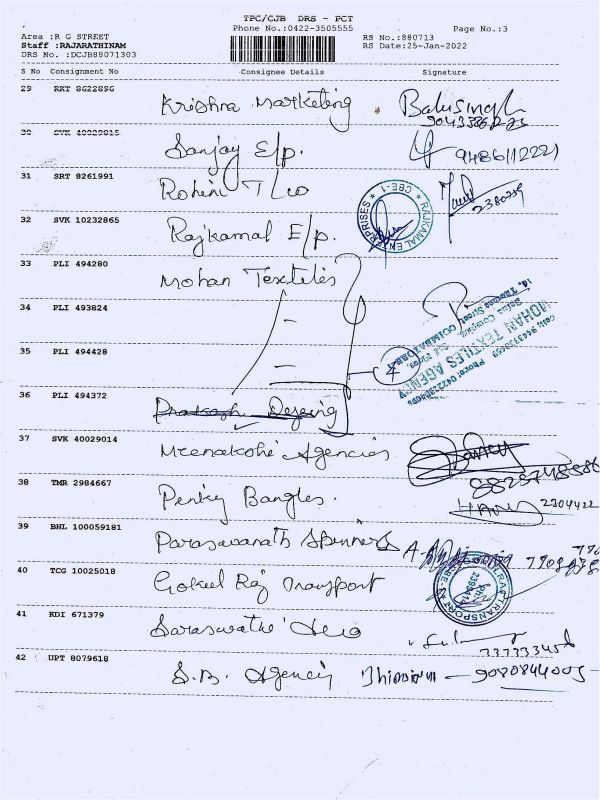 TPC/CJB DRS - PCT
Phone No.:0422-3505555
Page No.:3
Area :R G STREET
RS No.:880713
Staff :RAJARATHINAM
RS Date:25-Jan-2022
DRS No. :DCJB88071303
S No Consignment No Consignee Details Signature
29 RKT 8622896
Krishna Marketing Balusingh
30 SVK 40029015
Sanjay E/p.
31 SRT 8261991
Rohini T
2380259
RAJKAMAL ENTERPRISES * CBE-1 *
32 SVK 10232865
Rajkamal E/p.
33 PLI 494280
Mohan Textiles
34 PLI 493824
MOHAN TEXTILES AGENCY
COIMBATORE
35 PLI 494428
4
36 PLI 494372
Prakash
37 SVK 40029014
Meenakshi Agencies
38 TMR 2984667
Penky Bangles.
2304422
39 BHL 100059181
Parasavanath Spinners
40 TCG 10025018
Gokul Raj Transport
41 KDI 671379
Saraswathi
42 UPT 8079618
S.B. Agency
9080844005